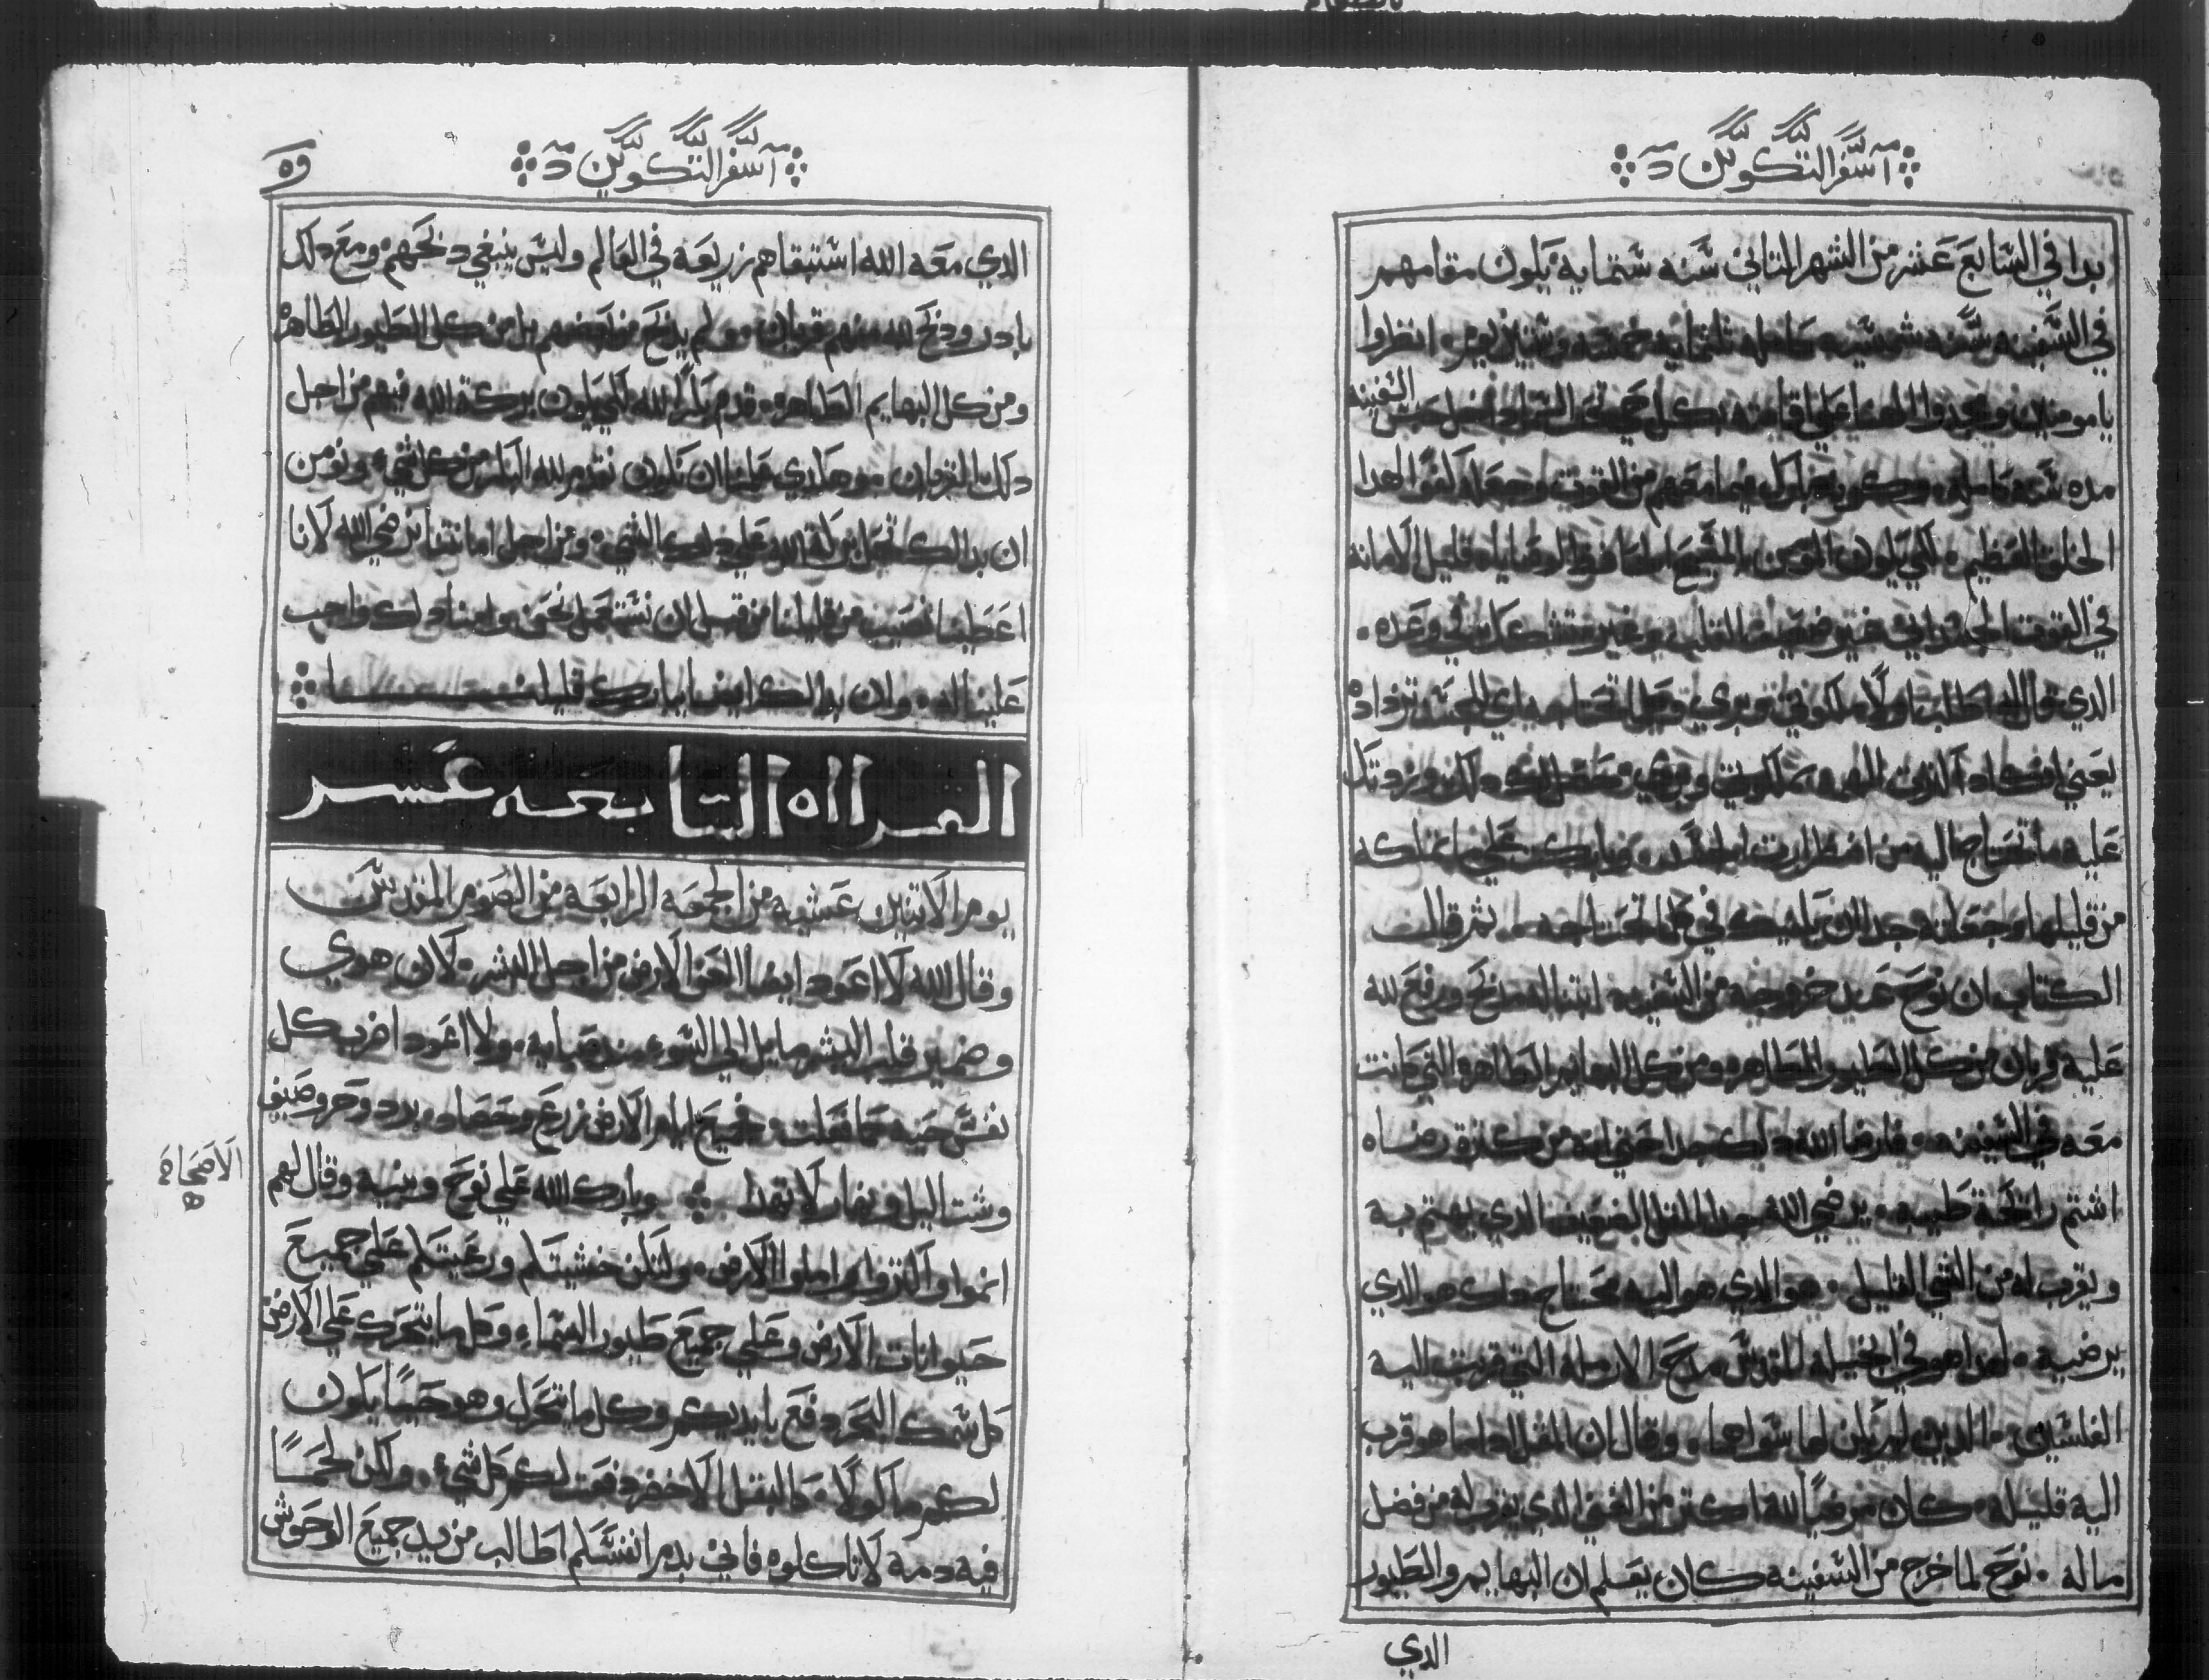 سفر التكوين
ابدا في السابع عشر من الشهر التاني سنه ستمايه يكون مقامهم
في السفينه سنه شمسيه كامله تلتمايه خمسه وستين يوم انظروا
يا مومنين ومجدوا الله علي اقامته بكل
السفينه
مده سنه كامله
الخلق العظيم لكي يكون المومن بالمسيح الحافظ لوصاياه قليل الامانه
في القوت الجسداني غير ضعيف القلب وغير متشكك في وعده
الذي قال اطلبوا اولا ملكوتي وبري وكلما تحتاجه اي الجسد تزدادوه
عليه ما تحتاج اليه من اضطرارت الجسد وبارك علي
من قليلها وجعلته جدا ان يكفيك في كلما تحتاجه ثم قالت
الكتاب ان نوح عند خروجه من السفينه ابتنا له مدبح ورفع لله
عليه قربان من كل الطيور الطاهره ومن كل البهايم الطاهره التي كانت
معه في السفينه فارضا الله دلك جدا حتي انه من كترة رضاه
اشتم رايحة طيبه يرضي الله جدا الفعل الضعيف الدي يهتم به
ويقرب له من الشي القليل هو الدي هو اليه محتاج دلك هو الدي
يرضيه لهدا هو في انجيله المقدس مدح الارمله التي قربت اليه
الفلسين الدين لم يكن لها سواهما وقال ان
اليه قليله كان مرضيا لله اكتر من الغني الدي يقرب له من فضل
ماله نوح لما خرج من السفينه كان يعلم ان البهايم والطيور
الدي
سفر التكوين
٥٩
الدي معه الله استبقاهم زريعه في العالم وليس ينبغي دبحهم ومع دلك
بادر ودبح لله منهم قربان ولم يدبح من بعضهم بل من كل الطيور الطاهره
ومن كل البهايم الطاهره قدم لله لكي يكون بركة الله فيهم من اجل
دلك القربان وهكدي يجب ان نكون نقدم لله البكر من كل شي ونومن
ان بدالك تحل بركة الله علي دلك الشي ومن اجل امانتنا يرضي الله لانا
اعطينا نصيب من قليلنا من قبل ان نستعمل نحن وامنا دلك واجب
علينا له وان بدالك ايضا يبارك قليلنا
القراه السابعه عشر
يوم الاتنين عشيه من الجمعه الرابعه من الصوم المقدس
وقال الله لا اعود ايضا العن الارض من اجل البشر لان هوي
وضمير قلب البشر مايل الي السوء مند صبايه ولا اعود اضرب كل
نفس حيه كما فعلت جميع ايام الارض زرع وحصاد برد وحر وصيف
وشت اليل ونهار لا تهدا وبارك الله علي نوح وبنيه وقال لهم
الاصحاح
٩
انموا واكتروا واملوا الارض ولتكن خشيتكم ورعبتكم علي جميع
حيوانات الارض وعلي جميع طيور السماء وكل ما يتحرك علي الارض
كل سمك البحر دفع بايديكم وكل ما تحرك وهو حيا يكون
لكم ماكولا كالبقل الاخضر دفعت لكم كل شيء ولكن لحما
فيه دمه لا تاكلوه فاني بدم انفسكم اطالب من يد جميع الوحوش